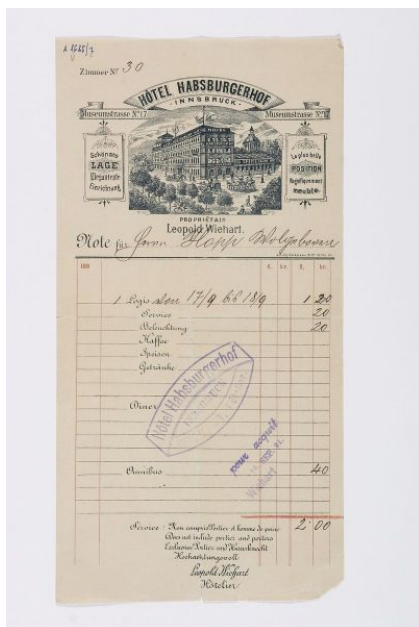 Zimmer Nº 30
HÔTEL HABSBURGERHOF
- INNSBRUCK -
Museumstrasse Nº 17
Museumstrasse Nº 17
Schönste
LAGE
Eleganteste
Einrichtung.
La plus belle
POSITION
Magnifiquement
meublé.
PROPRIÉTAIR
Leopold Wiehart.
Note für Herrn Hopp Wolgeboren
189 fl. kr. fl. kr.
1 Logis von 17/9 bis 18/9 1 20
Service 20
Beleuchtung 20
Kaffee
Speisen
Getränke
Hôtel Habsburgerhof
Diner
pour acquit
Wiehart
Omnibus 40
Service : Non compris Portier et homme de peine 2·00
Does not include portier and porters
Exclusive Portier und Hausknecht
Hochachtungsvoll
Leopold Wiehart
Hôtelier